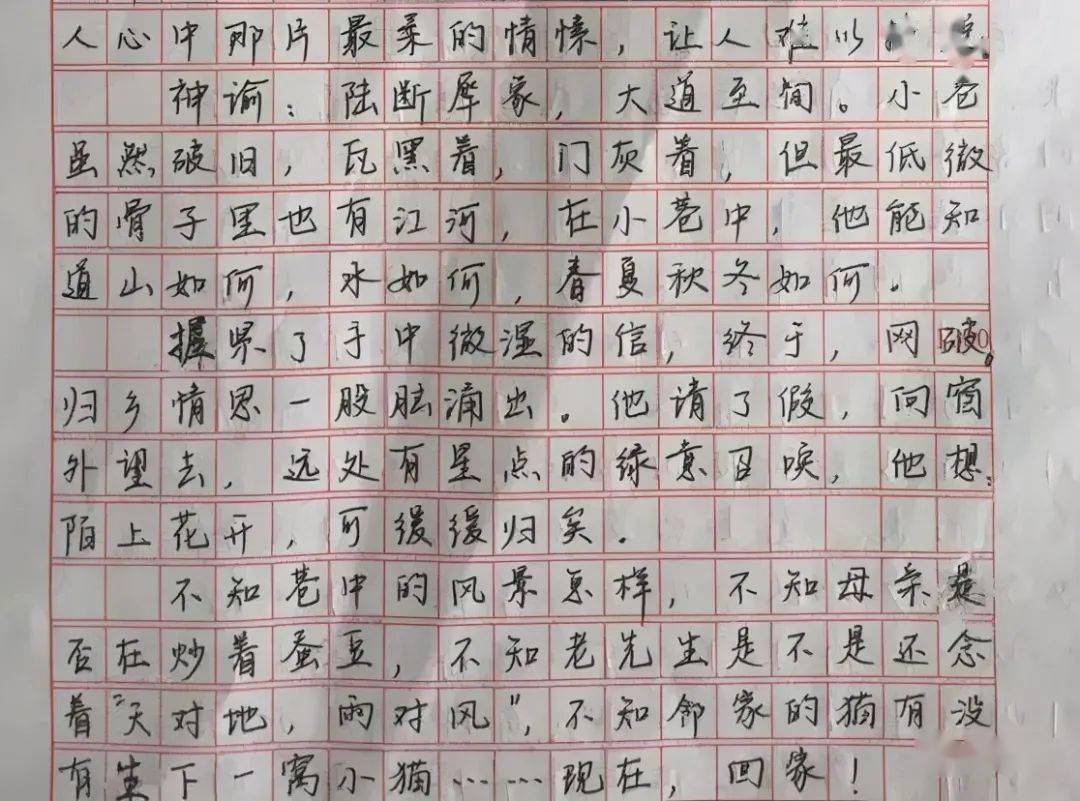 人心中那片最柔的情愫，让人难以
神谕：陆断犀象，大道至简。小巷
虽然破旧，瓦黑着，门灰着，但最低微
的骨子里也有江河，在小巷中，他能知
道山如何，水如何，春夏秋冬如何。
握紧了手中微湿的信，终于，网破。
归乡情思一股脑涌出。他请了假，向窗
外望去，远处有星点的绿意召唤，他想：
陌上花开，可缓缓归矣。
不知巷中的风景怎样，不知母亲是
否在炒着蚕豆，不知老先生是不是还念
着“天对地，雨对风”，不知邻家的猫有没
有生下一窝小猫……现在，回家！